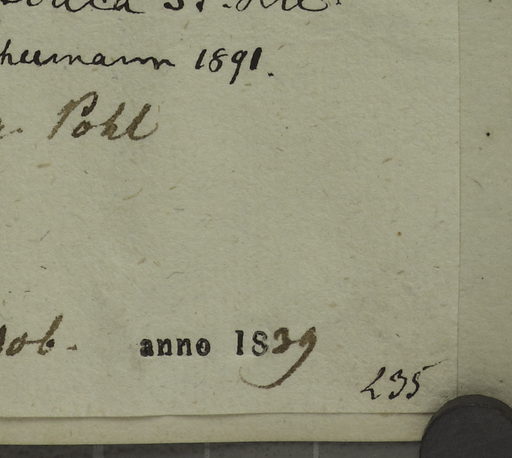 St. Hil.
heumann 1891.
Pohl
ob. anno 1839
235